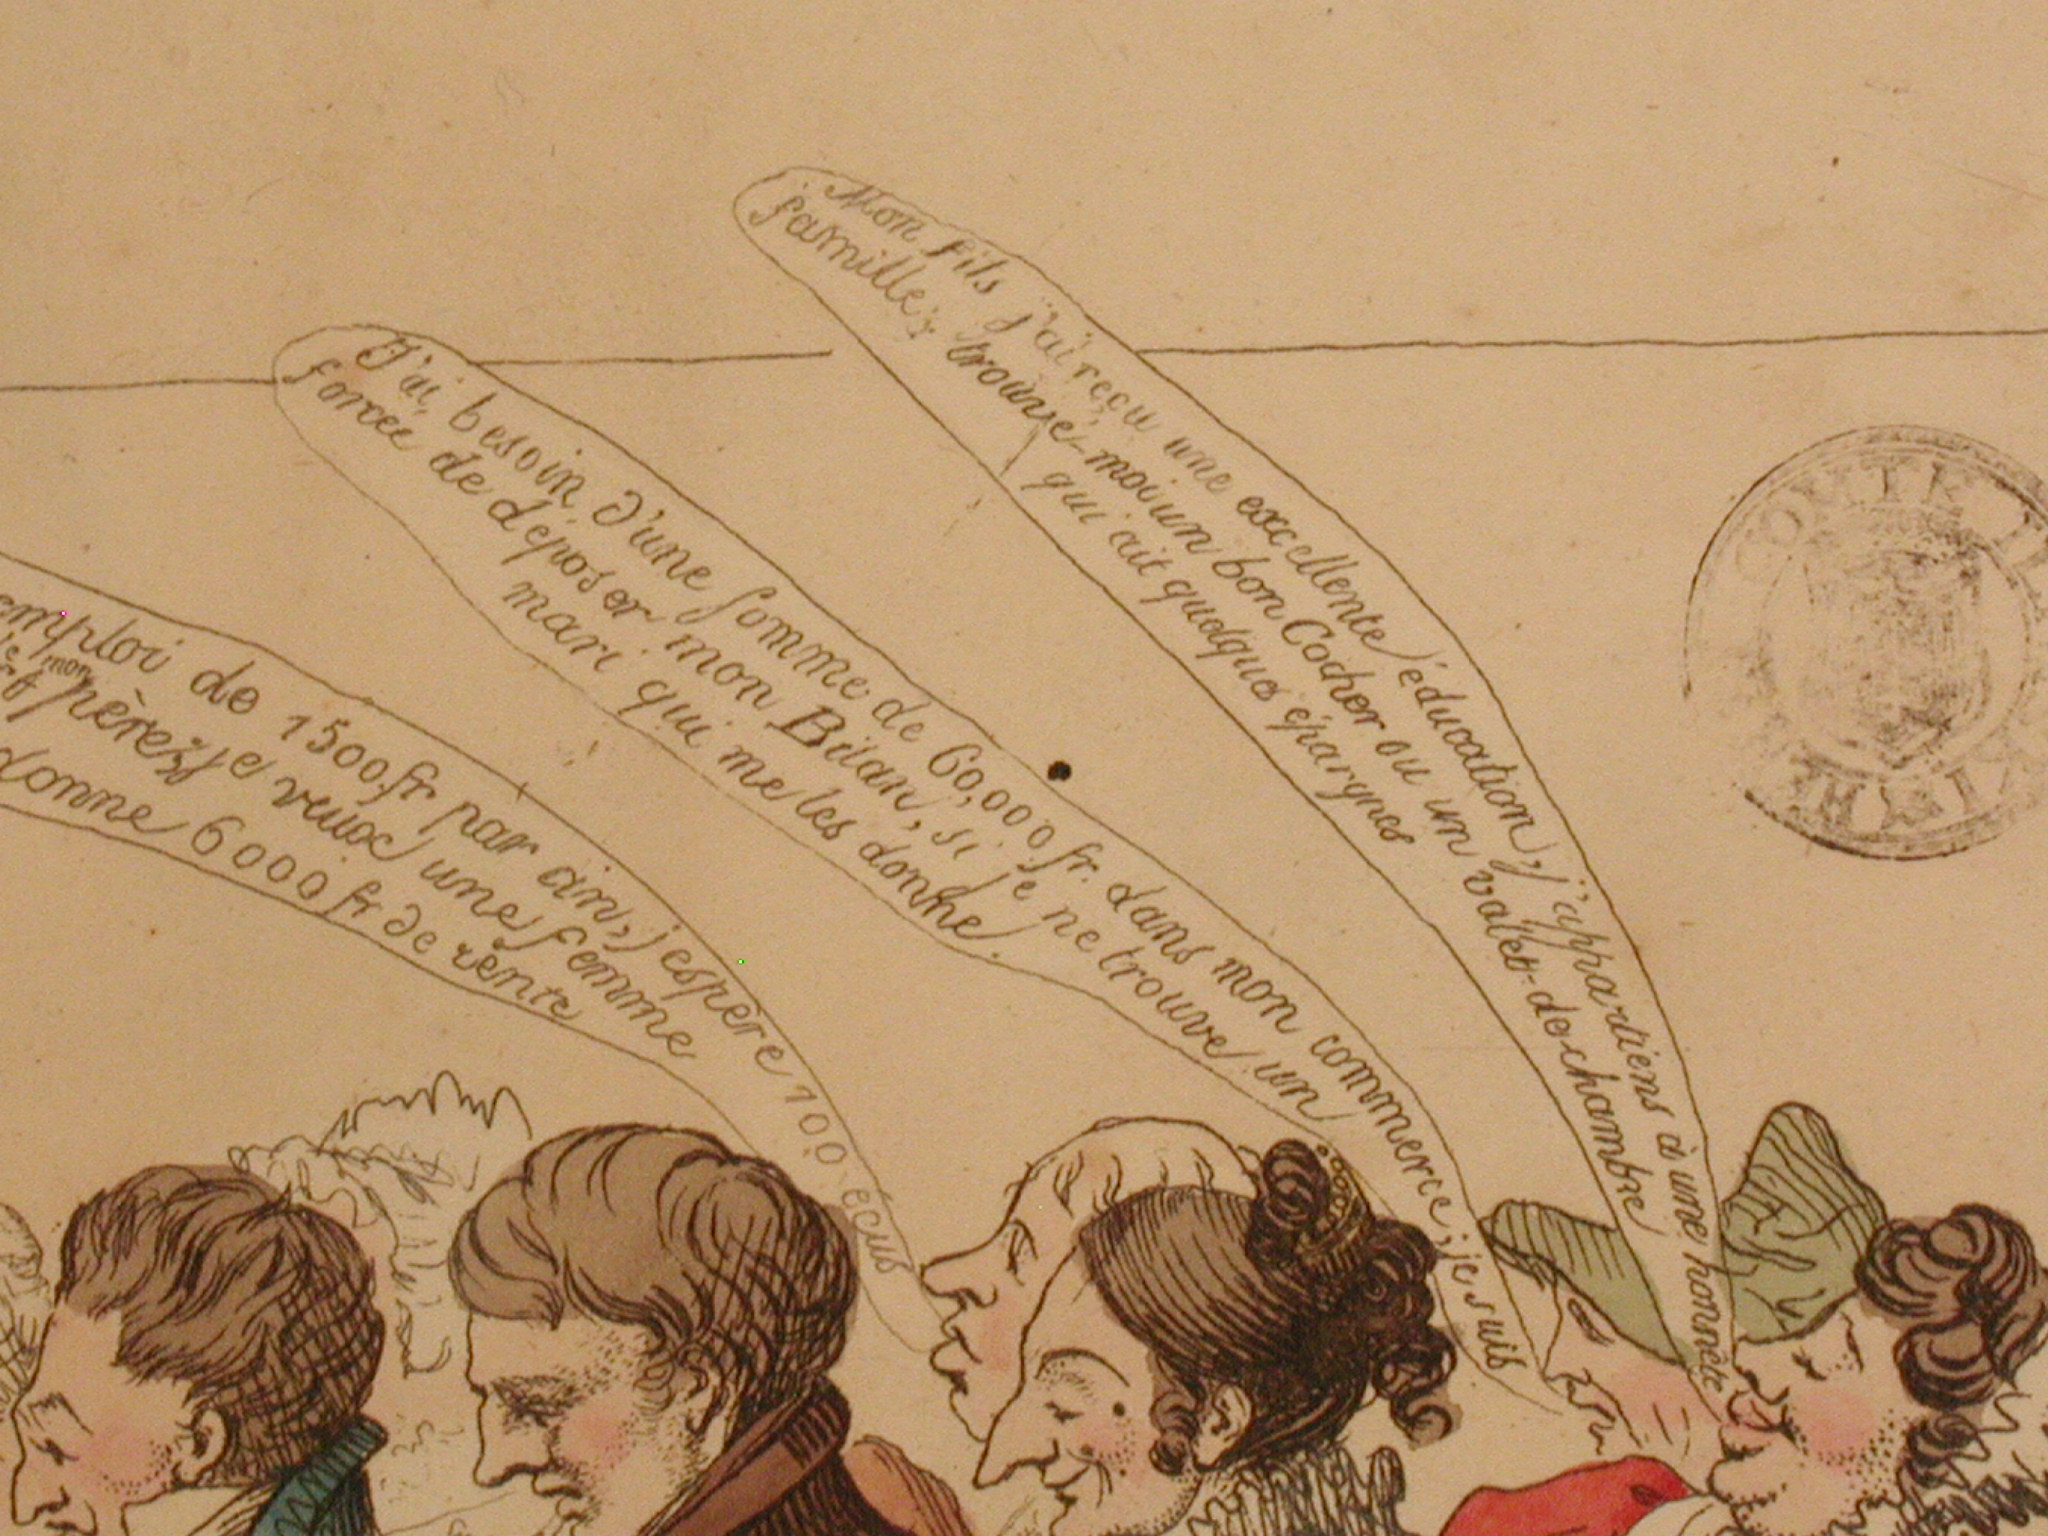 emploi de 1500 fr par an, j'espère 100 écus
mon
père, je veux une femme
donne 6000 fr de rente
J'ai besoin d'une somme de 60,000 fr. dans mon commerce; je suis
forcée de déposer mon Bilan, si je ne trouve un
mari qui me les donne.
Mon fils j'ai reçu une excellente éducation, j'appartiens à une honnête
famille; trouve-moi un bon Cocher ou un valet-de-chambre
qui ait quelques épargnes